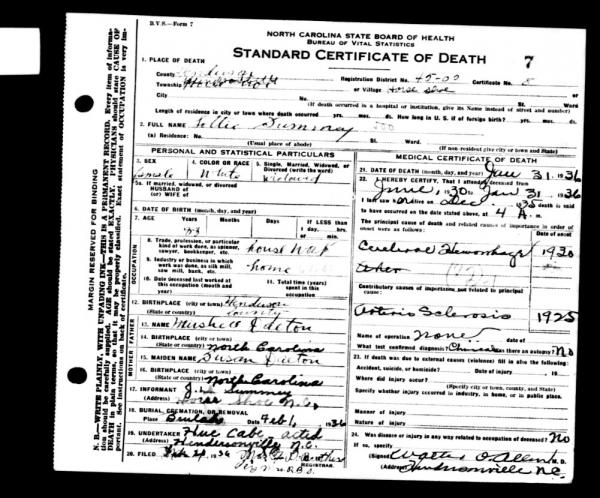 D.V.S.—Form 7
NORTH CAROLINA STATE BOARD OF HEALTH
BUREAU OF VITAL STATISTICS
STANDARD CERTIFICATE OF DEATH 7
1. PLACE OF DEATH
County Registration District No. 45-00 Certificate No. 8
Township or Village Horse Shoe
City No. St. Ward
(If death occurred in a hospital or institution, give its Name instead of street and number)
Length of residence in city or town where death occurred yrs. mos. ds. How long in U. S. if of foreign birth? yrs. mos. ds.
2. FULL NAME Summey
(a) Residence: No. St. Ward
(Usual place of abode) (If non-resident give city or town and State)
PERSONAL AND STATISTICAL PARTICULARS
3. SEX
female
4. COLOR OR RACE
White
5. Single, Married, Widowed, or Divorced (write the word)
widowed
5a. If married, widowed, or divorced
HUSBAND of
(or) WIFE of
6. DATE OF BIRTH (month, day, and year)
7. AGE Years Months Days IF LESS than
1 day, hrs.
or min.
OCCUPATION
8. Trade, profession, or particular kind of work done, as spinner, sawyer, bookkeeper, etc. house work
9. Industry or business in which work was done, as silk mill, saw mill, bank, etc. home
10. Date deceased last worked at this occupation (month and year)
11. Total time (years) spent in this occupation
12. BIRTHPLACE (city or town) Henderson
(State or country) County
FATHER
13. NAME
14. BIRTHPLACE (city or town)
(State or country) North Carolina
MOTHER
15. MAIDEN NAME Susan
16. BIRTHPLACE (city or town)
(State or country) North Carolina
17. INFORMANT Summey
(Address) Horse Shoe N.C.
18. BURIAL, CREMATION, OR REMOVAL
Place Date Feb 1, 1936
19. UNDERTAKER
(Address) Hendersonville N.C.
20. FILED 1936
REGISTRAR.
MEDICAL CERTIFICATE OF DEATH
21. DATE OF DEATH (month, day, and year) Jan 31 1936
22. I HEREBY CERTIFY, That I attended deceased from
June, 1930 to Jan 31, 1936
I last saw alive on Dec. 1935 death is said
to have occurred on the date stated above, at 4 A. m.
The principal cause of death and related causes of importance in order of onset were as follows: Date of onset
Cerebral Hemorrhage 1930
Contributory causes of importance not related to principal cause:
Arterio Sclerosis 1925
Name of operation none date of
What test confirmed diagnosis? Was there an autopsy? No
23. If death was due to external causes (violence) fill in also the following:
Accident, suicide, or homicide? Date of injury 19
Where did injury occur?
(Specify city or town, county, and State)
Specify whether injury occurred in industry, in home, or in public place.
Manner of injury
Nature of injury
24. Was disease or injury in any way related to occupation of deceased? No
If so, specify
(Signed) M. D.
(Address) Hendersonville N.C.
MARGIN RESERVED FOR BINDING
N. B.—WRITE PLAINLY, WITH UNFADING INK—THIS IS A PERMANENT RECORD. Every item of information should be carefully supplied. AGE should be stated EXACTLY. PHYSICIANS should state CAUSE OF DEATH in plain terms, so that it may be properly classified. Exact statement of OCCUPATION is very important. See instructions on back of certificate.